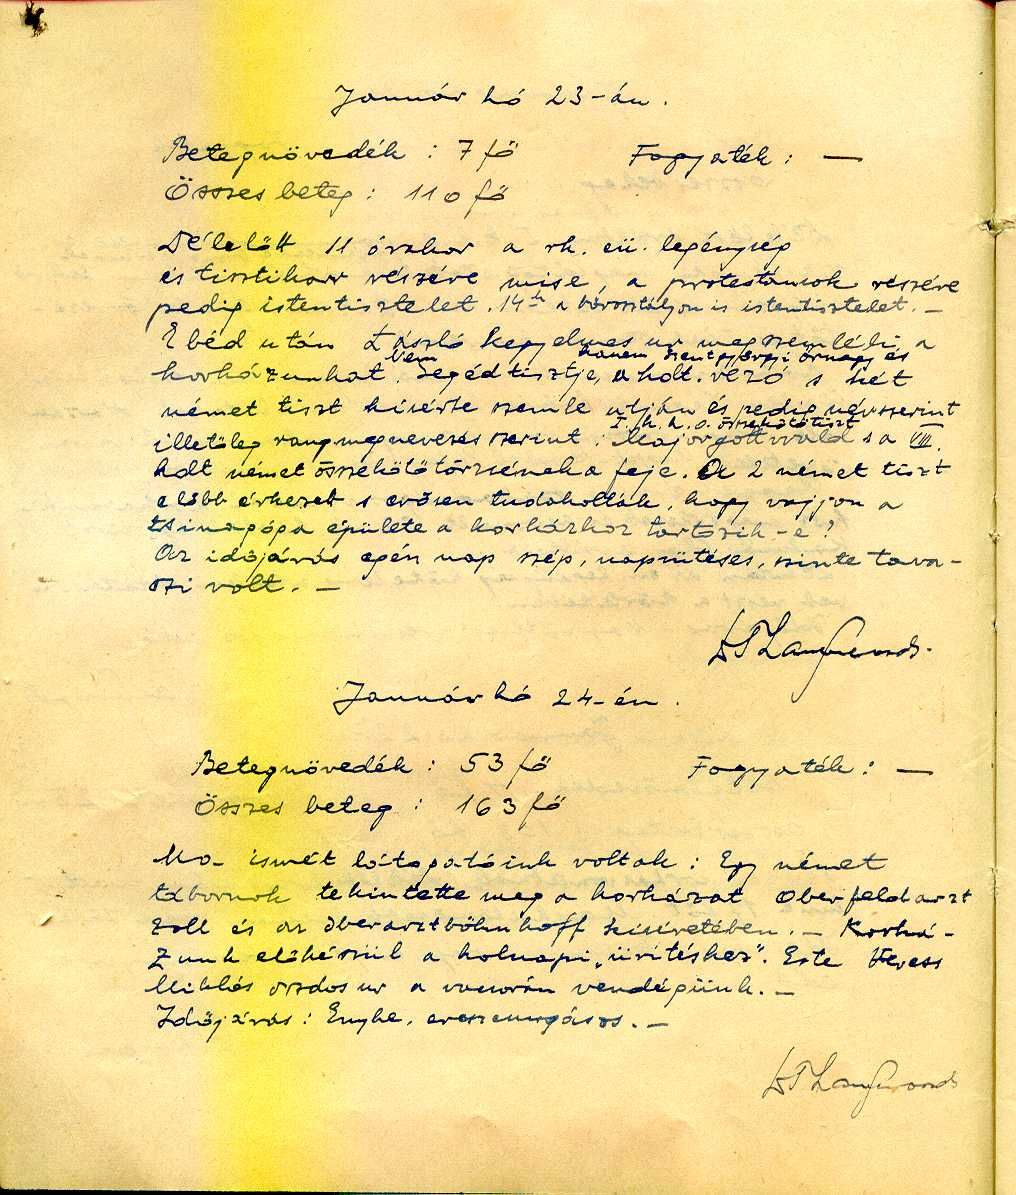 Január hó 23-án.
Betegnövedék : 7 fő Fogyaték : —
Összes beteg : 110 fő
Délelőtt 11 órakor a rk. eü. legénység
és tisztikar részére mise, a protestánsok részére
pedig istentisztelet. 14h a b.osztályon is istentisztelet. —
Ebéd után László kegyelmes ur megszemléli a
Nem hanem Szentgyörgyi őrnagy és
korházunkat. Segédtisztje, a hdt. vezó s két
német tiszt kisérte szemle utján és pedig névszerint
I. h. k. o. összekötőtiszt
illetőleg rangmegnevezés szerint : Major Gottwald s a VIII.
hdt német összekötőtörzsének a feje. A 2 német tiszt
előbb érkezett s erősen tudakolták, hogy vajjon a
zsinagóga épülete a korházhoz tartozik-e?
Az időjárás egén nap szép, napsütéses, szinte tava-
szi volt. —
Január hó 24-én.
Betegnövedék : 53 fő Fogyaték : —
Összes beteg : 163 fő
Ma ismét látogatóink voltak : Egy német
tábornok tekintette meg a korházat Oberfeldarzt
Zoll és az Oberarzt Böhnhoff kiséretében. — Korhá-
zunk előkészül a holnapi „ürítéshez". Este Veress
Miklós orvdos ur a vacsorán vendégünk. —
Időjárás : Enyhe, ereszcsurgásos. —